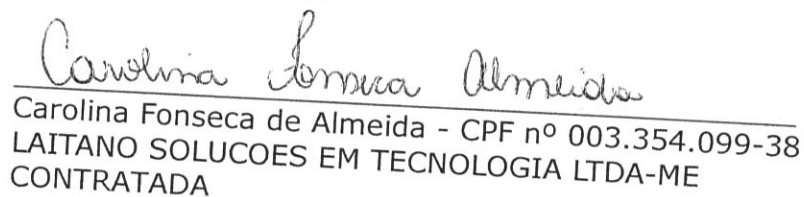 Carolina Fonseca Almeida
Carolina Fonseca de Almeida - CPF nº 003.354.099-38
LAITANO SOLUCOES EM TECNOLOGIA LTDA-ME
CONTRATADA